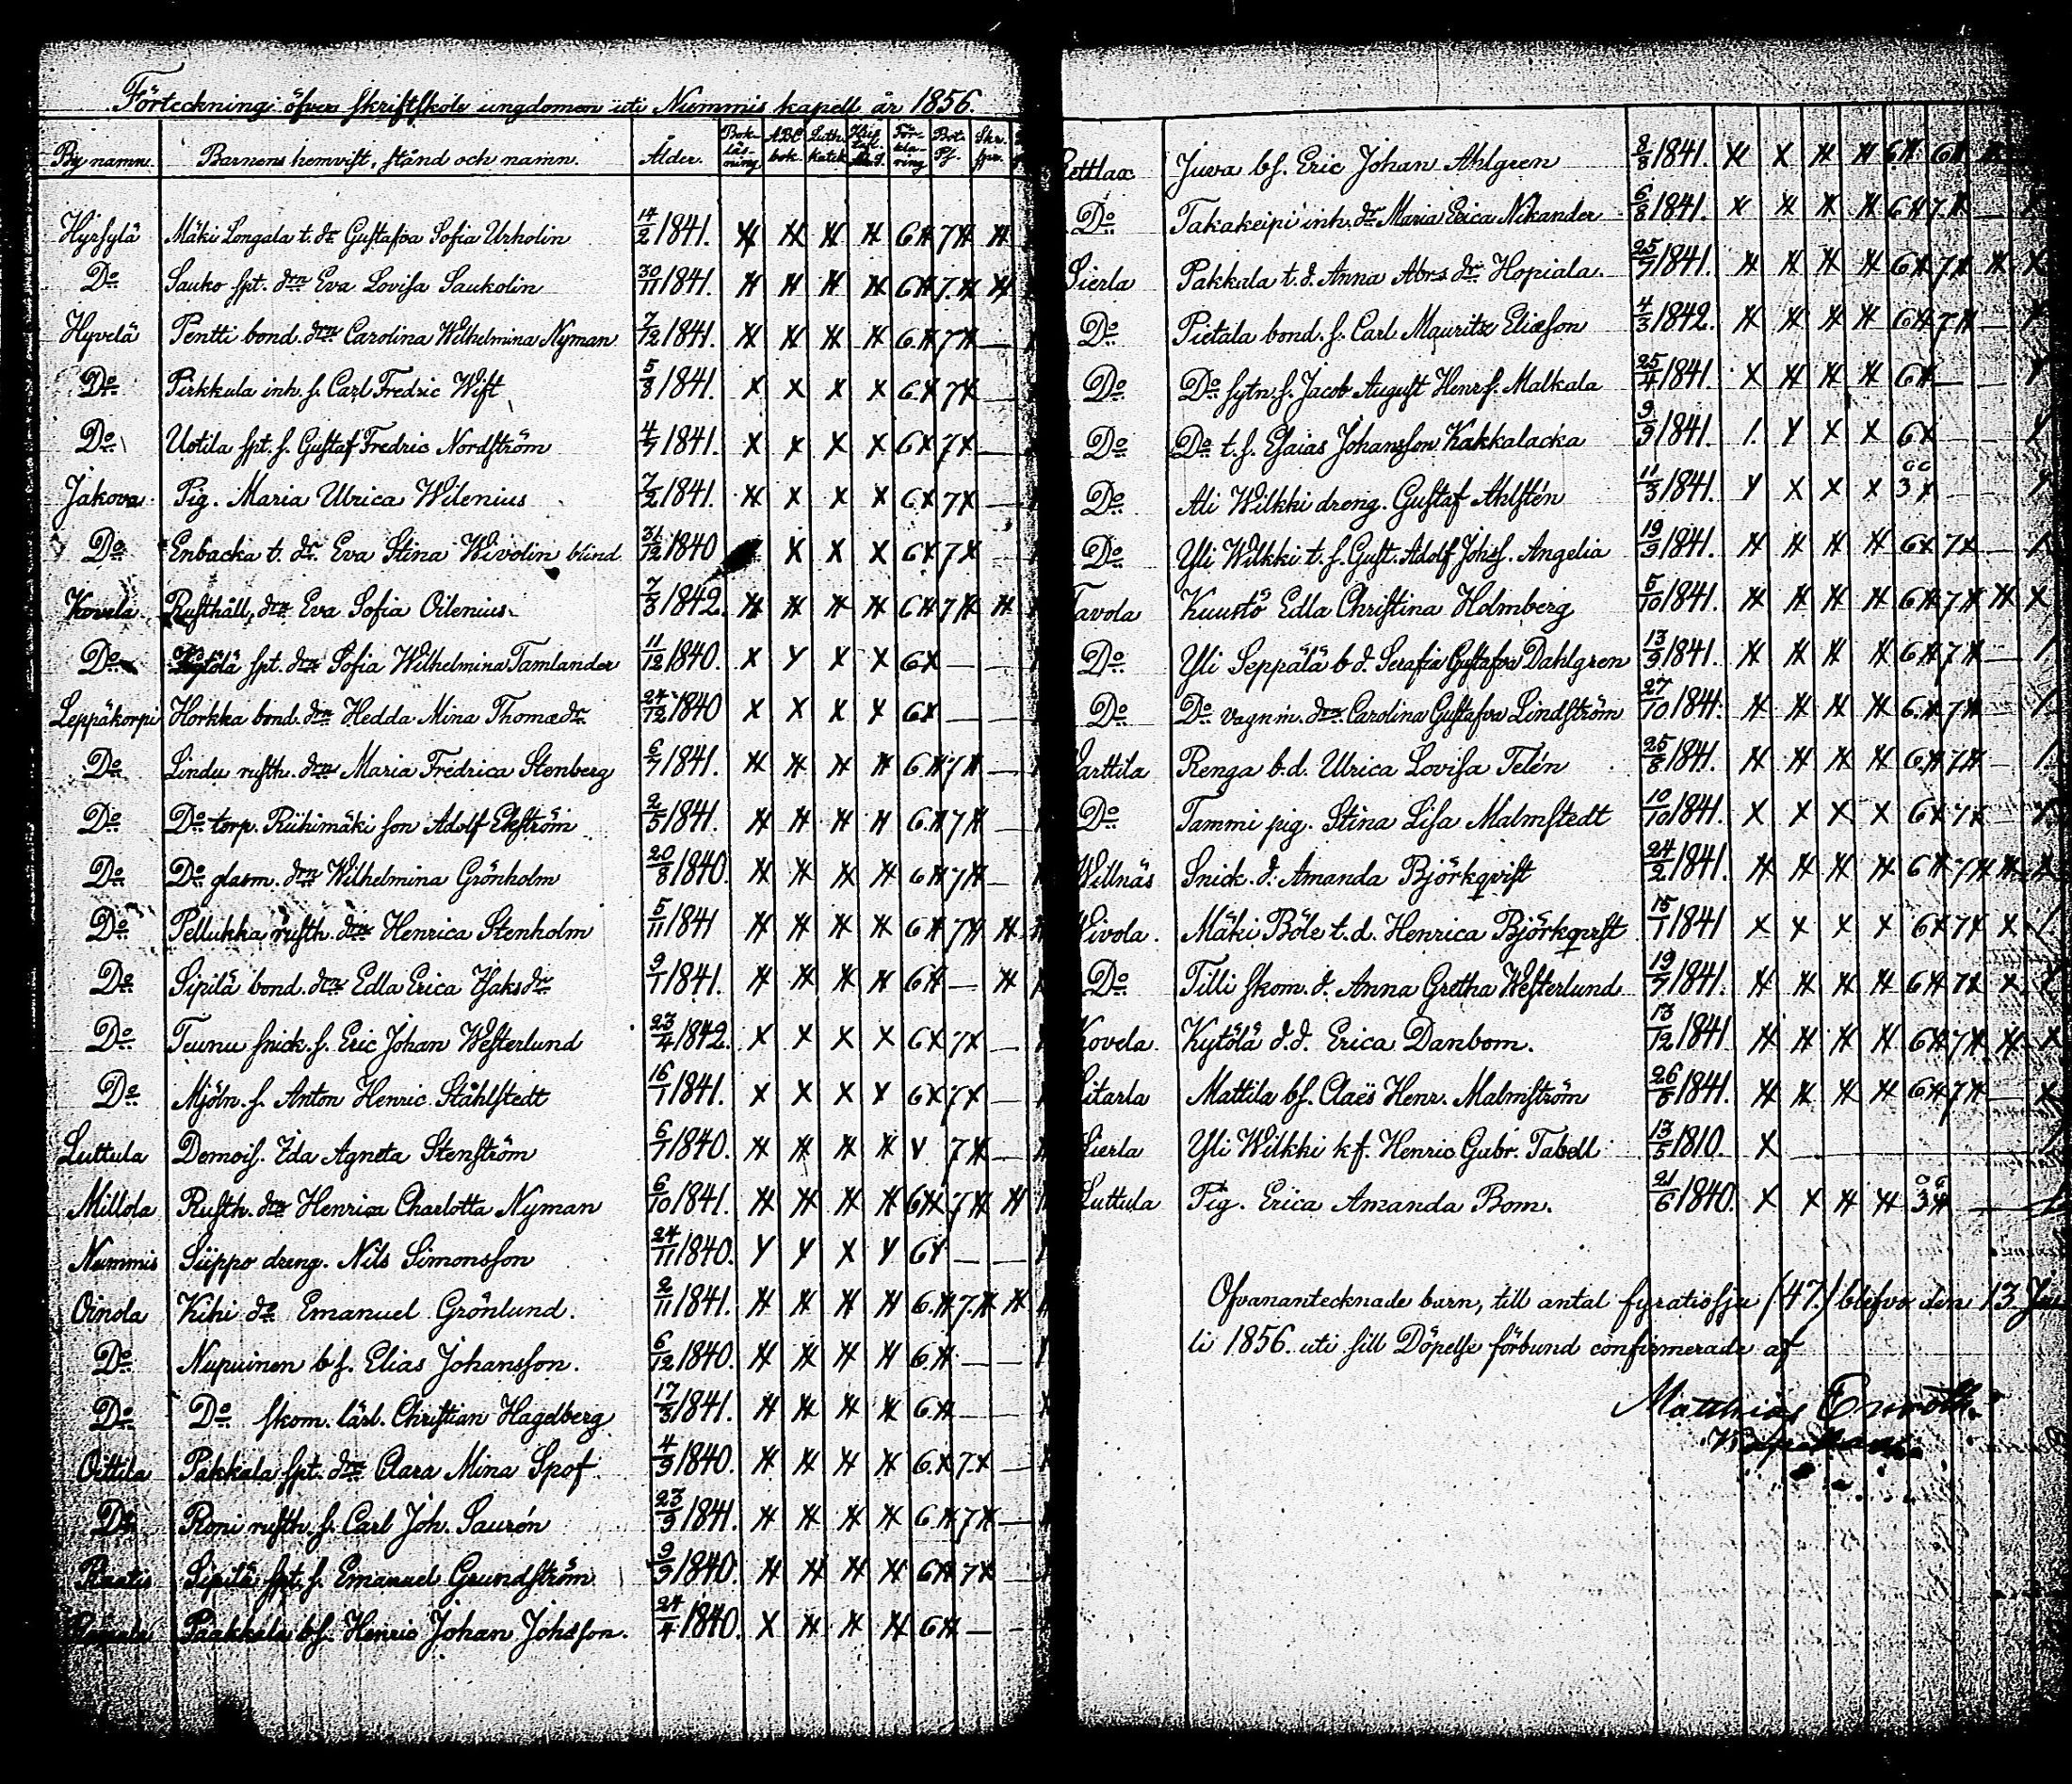 Förteckning öfver skriftskole ungdomen uti Nummis kapell år 1856.
By namn. Barnens hemvist, stånd och namn. Ålder. Bok-läs-ning ABC bok. Luth. katek. Hus tafl. För-kla-ring Bot. Ps. Skr. spr.
Hyrsylä Mäki Longala t. dr Gustafva Sofia Urholin 14/2 1841. 6 7
Do Sauko spt. drn Eva Lovisa Saukolin 30/11 1841. 6 7
Hyvelä Pentti bond. drn Carolina Wilhelmina Nyman 7/12 1841. 6 7 —
Do Pirkkula inh. s. Carl Fredric Wist 5/8 1841. X X X X 6X 7X
Do Uotila spt. s. Gustaf Fredric Nordström 4/7 1841. X X X X 6X 7X —
Jakova Pig. Maria Ulrica Wilenius 7/2 1841. X X X 6X 7X —
Do Enbacka t. dr. Eva Stina Wivolin blind 31/12 1840 X X X 6X 7X
Kovela Rusthåll. drn Eva Sofia Oilenius 7/3 1842. 6 7
Do Kytölä spt. drn Sofia Wilhelmina Tamlander 11/12 1840. X Y X X 6X — —
Leppäkorpi Horkka bond. drn Hedda Mina Thomædr. 24/12 1840 X X X X 6X — —
Do Lindu rusth. drn Maria Fredrica Stenberg 6/7 1841. 6 7 —
Do Do torp. Riihimäki son Adolf Ekström 2/5 1841. 6 7 —
Do Do glasm. drn Wilhelmina Grönholm 20/8 1840. 6 7 —
Do Pellukka rusth. drn Henrica Stenholm 5/11 1841 6 7
Do Sipilä bond. drn Edla Erica Isaksdr 9/1 1841. 6 —
Do Teunu snick. s. Eric Johan Westerlund 23/4 1842. X X X X 6X 7X —
Do Mjöln. s. Anton Henric Ståhlstedt 16/1 1841. X X X X 6X 7X —
Luttula Demois. Ida Agneta Stenström 6/7 1840. V 7 —
Millola Rusth. drn Henrica Charlotta Nyman 6/10 1841. 6 7
Nummis Siippo dreng. Nils Simonsson 24/11 1840. Y Y X Y 6Y — —
Oinola Kihi do Emanuel Grönlund. 2/11 1841. 6 7
Do Nupuinen b s. Elias Johansson. 6/12 1840. 6 — —
Do Do skom. lärl. Christian Hagelberg 17/3 1841. 6 — —
Oittila Pakkala spt. drn Clara Mina Spof 4/9 1840. 6X 7X —
Do Roni rusth. s. Carl Joh. Saurén 23/9 1841. 6 7 —
Sipilä spt. s. Emanuel Grundström 9/9 1840. 6 7X —
Paakkala bs. Henric Johan Johsson. 24/4 1840. X 6 — —
Pettlax Juva bs. Eric Johan Ahlgren 8/8 1841. X 6 6
Do Takakeipi inh. dr Maria Erica Nikander 6/8 1841. X 6 7 —
Sierla Pakkala t. d. Anna Abrs dr Hopiala. 25/7 1841. 6 7
Do Pietala bond. s. Carl Mauritz Eliæson 4/3 1842. 6 7 —
Do Do sytn. s. Jacob August Henrs. Malkala 25/4 1841. X 6 — —
Do Do t. s. Esaias Johansson Kakkalacka 9/9 1841. 1. Y X X 6X — —
Do Ali Wilkki dreng. Gustaf Ahlstén 11/3 1841. Y X X X 3X — —
Do Yli Wilkki t. s. Gust. Adolf Johss. Angelia 19/9 1841. 6X 7X —
Tavola Kuustö Edla Christina Holmberg 5/10 1841. 6 7 X
Do Yli Seppälä b d. Serafia Gustafva Dahlgren 13/9 1841. 6 7 —
Do Do vagnm. drn. Carolina Gustafva Lindström 27/10 1841. 6 7 —
Varttila Renga b. d. Ulrica Lovisa Telén 25/8 1841. 6 7 —
Do Tammi pig. Stina Lisa Malmstedt 10/10 1841. X X X X 6X 7X —
Willnäs Snick. d. Amanda Björkqvist 24/2 1841. 6 7
Wivola. Mäki Böle t. d. Henrica Björkqvist 15/1 1841 X X X X 6X 7X X
Do Tilli skom. d. Anna Gretha Westerlund 19/7 1841. 6 7X X
Kovela Kytölä d. d. Erica Danbom. 13/12 1841 6 7
Sitarla Mattila bs. Claës Henr. Malmström 26/8 1841. 6 7 — X
Sierla Yli Wilkki k s. Henric Gabr. Tabell 13/5 1810. X
Luttula Pig. Erica Amanda Bom. 21/6 1840. X X 3 —
Ofvanantecknade barn, till antal fyratiosju (47.) blefvo den 13 Ju
li 1856 uti sitt Döpelse förbund confirmerade af
Matthias Enroth.